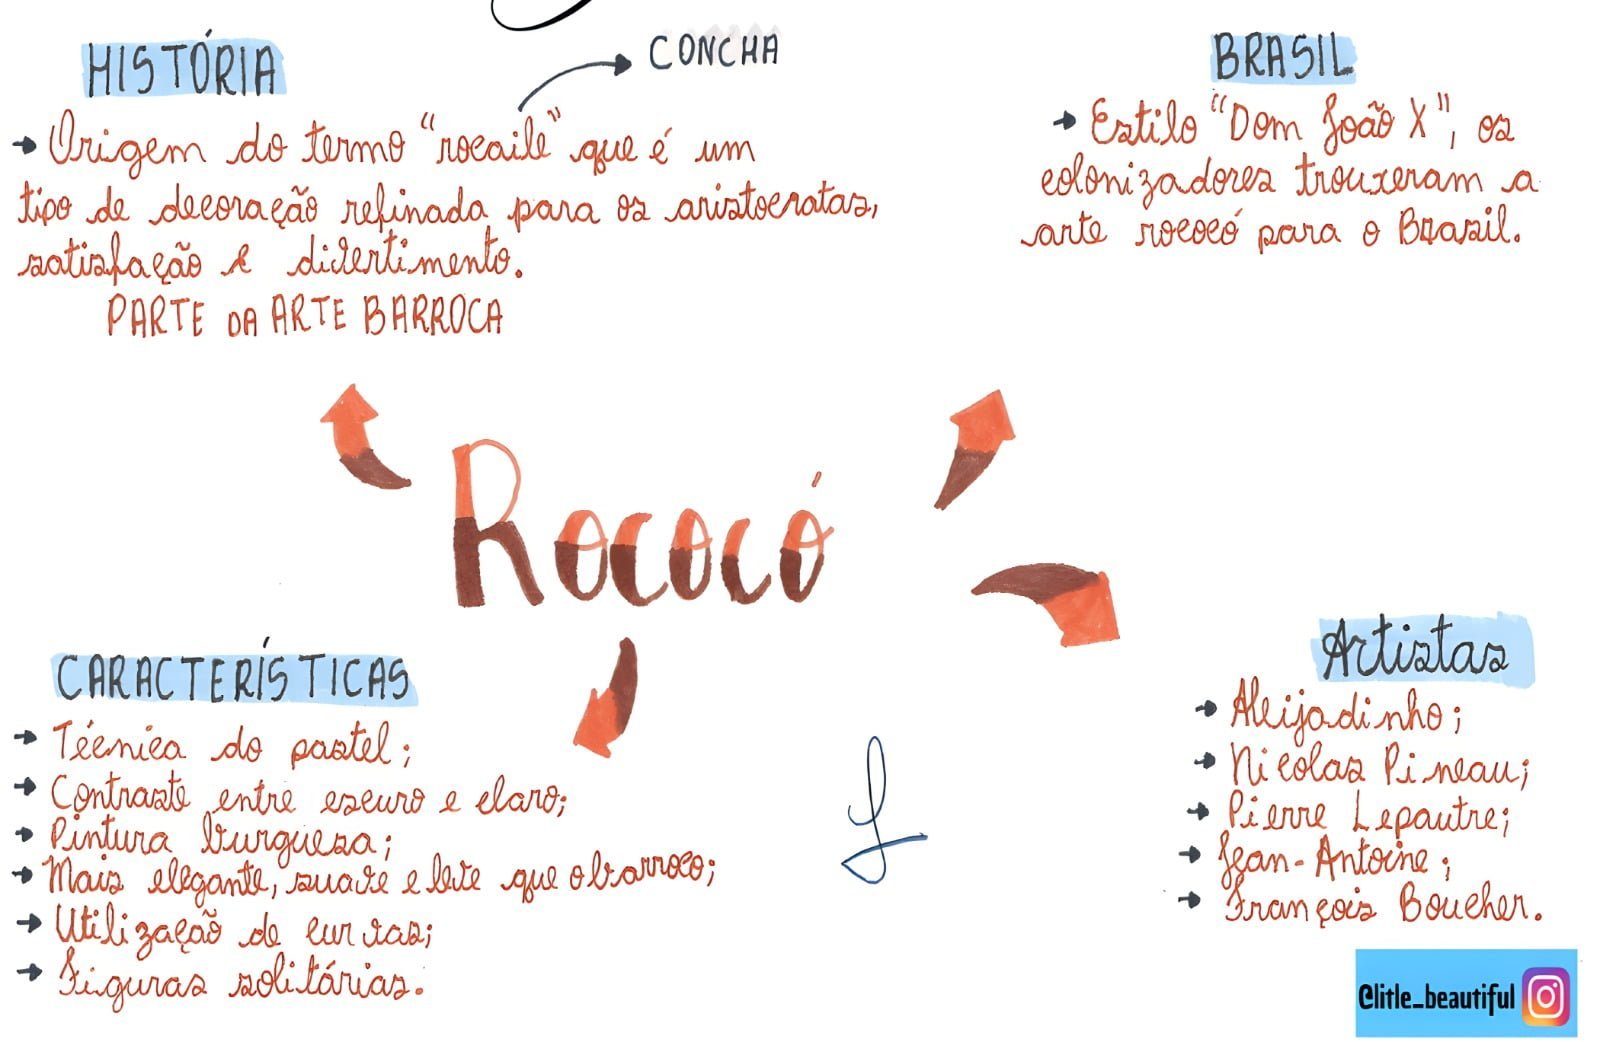 HISTÓRIA
→ CONCHA
→ Origem do termo "rocaile" que é um
tipo de decoração refinada para os aristocratas,
satisfação e divertimento.
PARTE DA ARTE BARROCA
BRASIL
→ Estilo "Dom João X", os
colonizadores trouxeram a
arte rococó para o Brasil.
Rococó
CARACTERÍSTICAS
→ Técnica do pastel;
→ Contraste entre escuro e claro;
→ Pintura burguesa;
→ Mais elegante, suave e leve que o barroco;
→ Utilização de curvas;
→ Figuras solitárias.
Artistas
→ Aleijadinho;
→ Nicolas Pineau;
→ Pierre Lepautre;
→ Jean-Antoine;
→ François Boucher.
@litle_beautiful